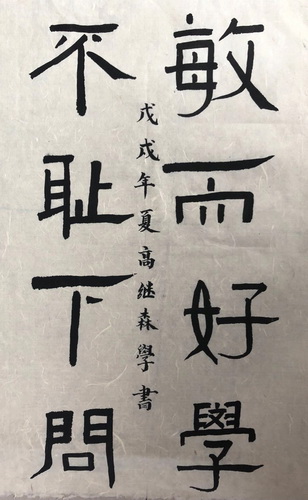 敏而好學
不耻下問
戊戌年夏高继森學書